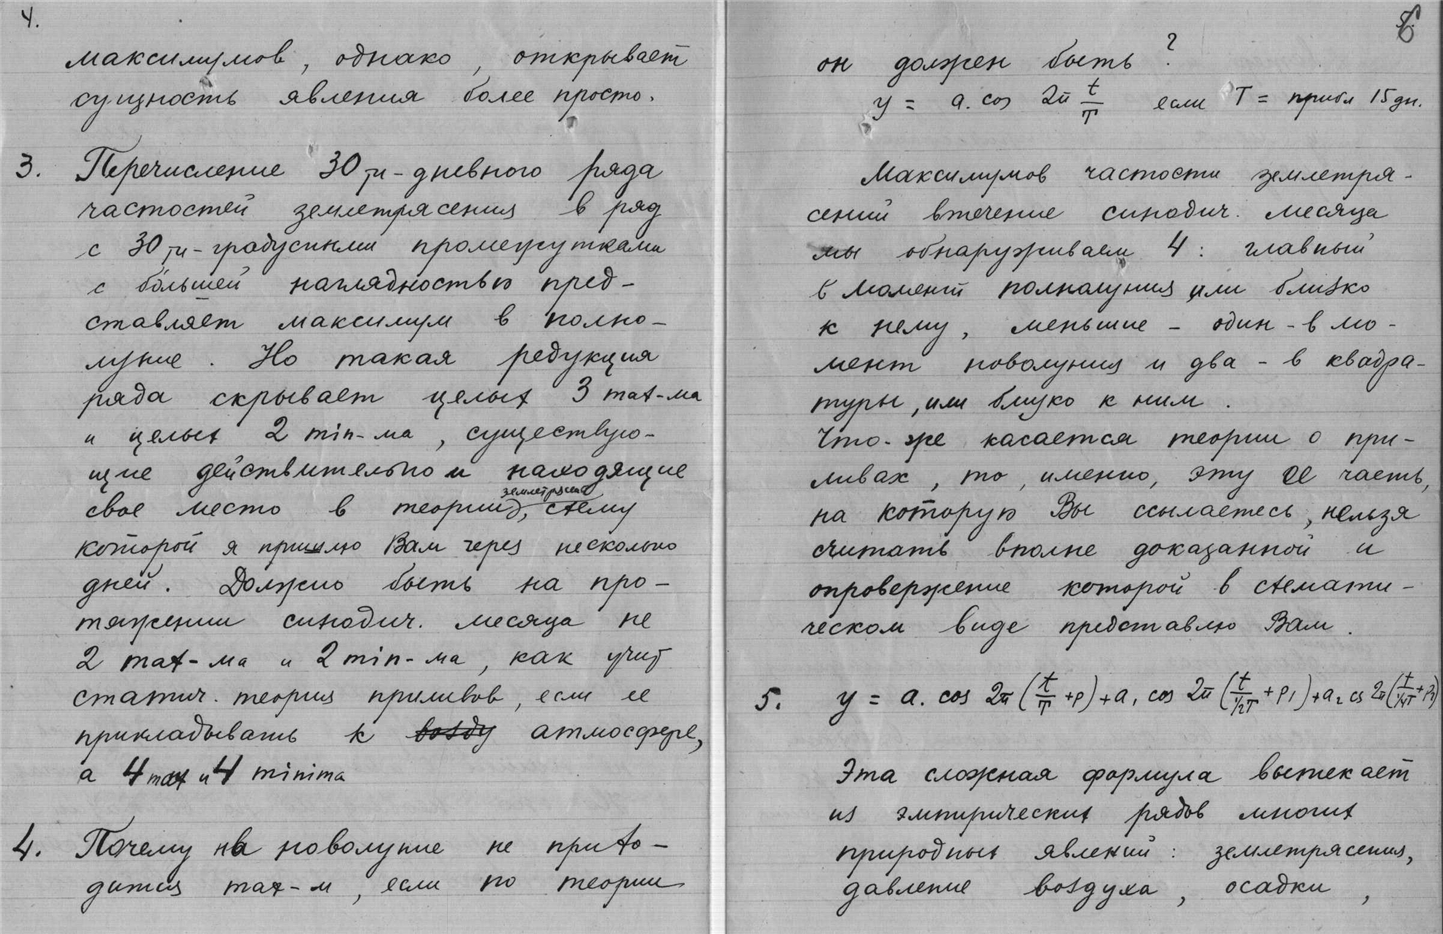 4.
максимумов, однако, открывает
сущность явления более просто.
3. Перечисление 30ти-дневного ряда
частостей землетрясения в ряд
с 30ти-градусными промежутками
с большей наглядностью пред-
ставляет максимум в полно-
луние. Но такая редукция
ряда скрывает целых 3 max-ма
и целых 2 min-ма, существую-
щие действительно и находящие
землетрясений
свое место в теории, схему
которой я пришлю Вам через несколько
дней. Должно быть на про-
тяжении синодич. месяца не
2 max-ма и 2 min-ма, как учит
статич. теория приливов, если ее
прикладывать к возду атмосфере,
а 4 max и 4 minima
4. Почему на новолуние не прихо-
дится max-м, если по теории
6
он должен быть?
y = a. cos 2π t/T если T = прибл 15 дн.
Максимумов частости землетря-
сений втечение синодич. месяца
мы обнаруживаем 4: главный
в момент полнолуния или близко
к нему, меньшие - один - в мо-
мент новолуния и два - в квадра-
туры, или близко к ним.
Что-же касается теории о при-
ливах, то, именно, эту ее часть,
на которую Вы ссылаетесь, нельзя
считать вполне доказанной и
опровержение которой в схемати-
ческом виде представлю Вам.
5. y = a. cos 2π (t/T + p) + a₁ cos 2π (t/½T + p₁) + a₂ cs 2π (t/¼T + p₂)
Эта сложная формула вытекает
из эмпирических рядов многих
природных явлений: землетрясения,
давление воздуха, осадки,